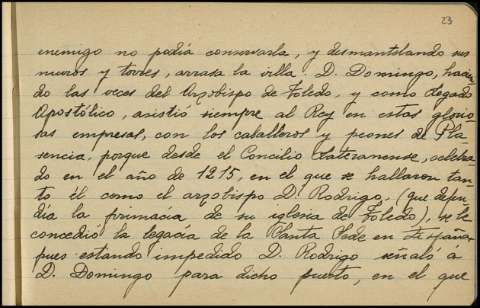 23
enemigo no podía conservarla, y desmantelando sus
muros y torres, arrasa la villa. D. Domingo, hacien
do las veces del Arzobispo de Toledo, y como legado
Apostólico, asistió siempre al Rey en estas glorio
sas empresas, con los caballeros y peones de Pla-
sencia, porque desde el Concilio Lateranense, celebra
do en el año de 1215, en el que se hallaron tan-
to él como el arzobispo D. Rodrigo, (que defen-
día la primacía de su iglesia de Toledo), se le
concedió la legacía de la Santa Sede en España,
pues estando impedido D. Rodrigo señaló á
D. Domingo para dicho puesto, en el que